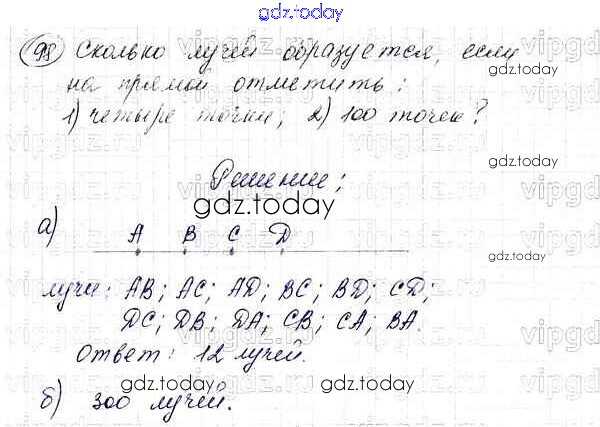 gdz.today
98 Сколько лучей образуется, если
на прямой отметить:
1) четыре точки; 2) 100 точек?
gdz.today
gdz.today
Решение:
gdz.today
а) A B C D
лучи: AB; AC; AD; BC; BD; CD;
DC; DB; DA; CB; CA; BA.
Ответ: 12 лучей.
gdz.today
gdz.today
б) 300 лучей.
gdz.today